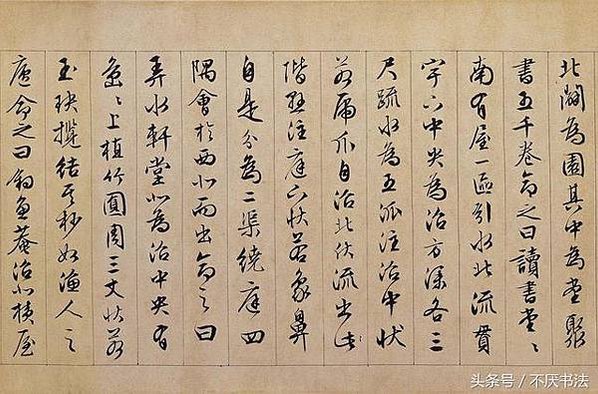 北闢為園其中為堂聚
書五千卷命之曰讀書堂〻
南有屋一區引水北流貫
宇下中央為沼方深各三
尺疏水為五派注沼中狀
若虎爪自沼北伏流出北
階懸注庭下狀若象鼻
自是分為二渠繞庭四
隅會於西北而出命之曰
弄水軒堂北為沼中央有
島〻上植竹圓周三丈狀若
玉玦攬結其杪如漁人之
廬命之曰釣魚菴沼北橫屋
头条号 / 不厌书法